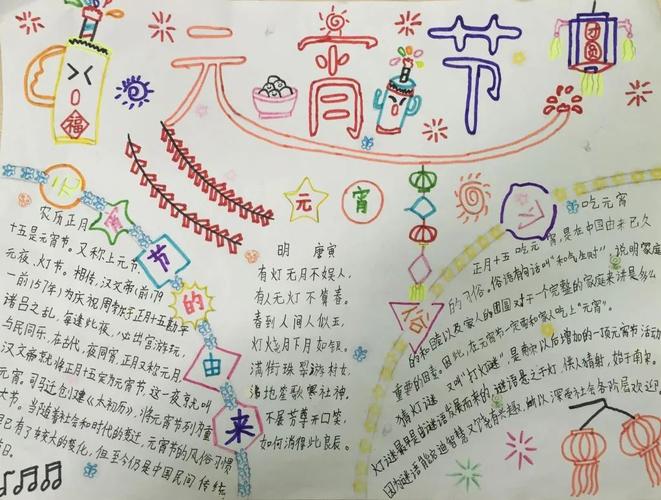 元宵节
团圆
福
元宵节的由来
农历正月
十五是元宵节。又称上元节
元夜、灯节。相传,汉文帝(前179
一前157年)为庆祝周勃于正月十五勘平
诸吕之乱,每逢此夜,必出宫游玩,
与民同乐,在古代,夜同宵,正月又称元月,
汉文帝就将正月十五定为元宵节,这一夜就叫
元宵。司马迁创建《太初历》,将元宵节列为重
大节。当随着社会和时代的变迁,元宵节的风俗习惯
早已有了较大的变化,但至今仍是中国民间传统
节日。
元宵
明 唐寅
有灯无月不娱人,
有人无灯不算春。
春到人间人似玉,
灯烧月下月如银。
满街珠翠游村女,
沸地笙歌赛社神。
不展芳尊开口笑,
如何消得此良辰。
吃元宵
正月十五吃元宵,是在中国由来已久
的习俗。俗语有句话叫"和气生财"说明家庭
的和睦以及家人的团圆对于一个完整的家庭来讲是多么
重要的因素。因此,在元宵节一定要和家人吃上"元宵"。
猜灯谜 又叫"打灯谜"是南宋以后增加的一项元宵节活动
灯谜最早是由谜语发展而来的,谜语悬之于灯,供人猜射,始于南宋。
因为谜语能启迪智慧又饶有兴趣,所以深受社会各阶层欢迎